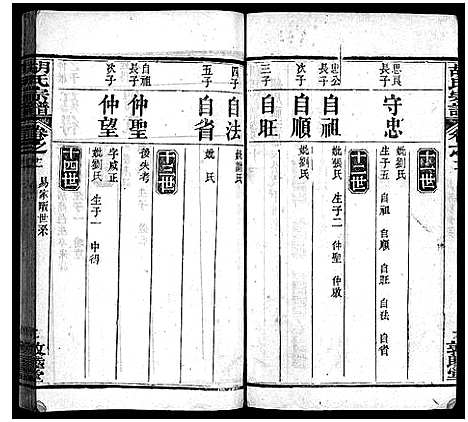 胡氏宗譜
卷之
思良
長子
守忠
妣劉氏
生子五 自祖 自順 自旺 自法 自省
十二世
忠公
長子
自祖
妣張氏 生子二 仲聖 仲啟
次子
自順
三子
自旺
四子
自法
妣劉氏
五子
自省
妣 氏
十三世
自祖
長子
仲聖
後失考
次子
仲望
字咸正
妣劉氏 生子一 中得
十四世
胡氏宗譜
卷之一
易家嘴世系
二
敦睦堂